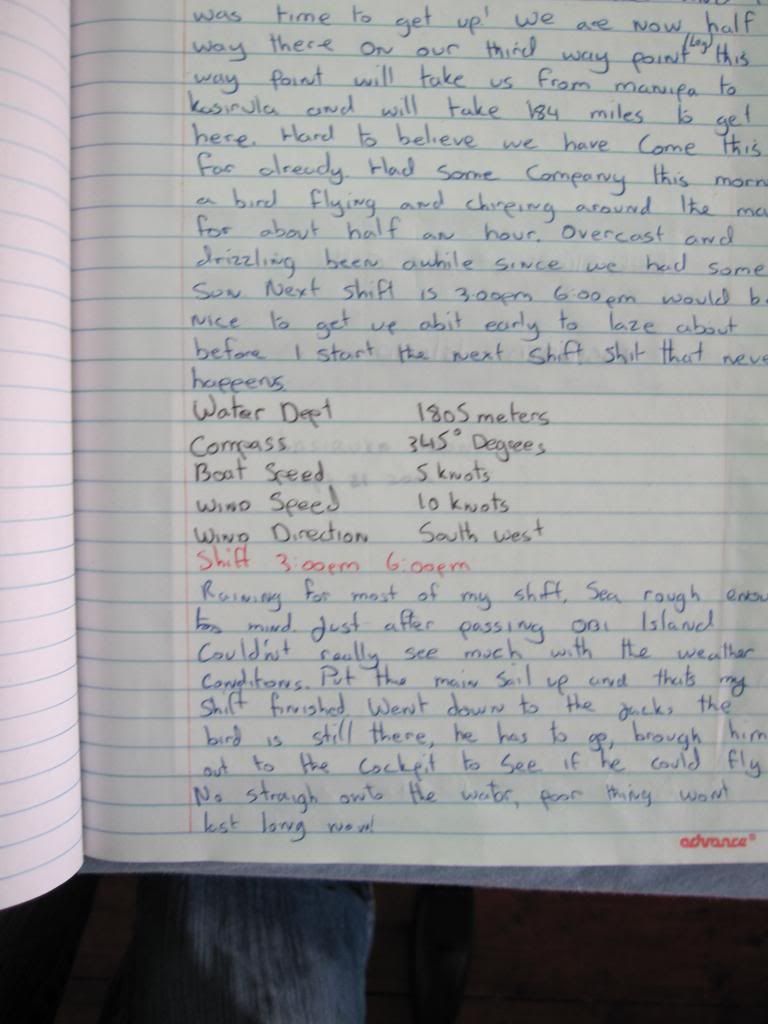 was time to get up! We are now half
way there on our third way point (Leg) this
way point will take us from manipa to
kasirula and will take 184 miles to get
here. Hard to believe we have Come this
far already. Had Some Company this morn
a bird flying and chirping around the ma
for about half an hour. Overcast and
drizzling been awhile since we had some
Sun. Next shift is 3:00pm 6:00pm would b
nice to get up abit early to laze about
before I start the next shift shit that neve
happens
Water Dept 1805 meters
Compass 345° Degees
Boat Speed 5 knots
Wind Speed 10 knots
Wind Direction South west
Shift 3:00pm 6:00pm
Raining for most of my shift. Sea rough enou
too mind. Just after passing OBI Island
Couldn't really see much with the weather
Conditions. Put the main Sail up and thats my
Shift finished Went down to the the
bird is still there, he has to go, brough him
out to the Cockpit to See if he could fly
No straigh onto the water, poor thing wont
last long now!
advance®